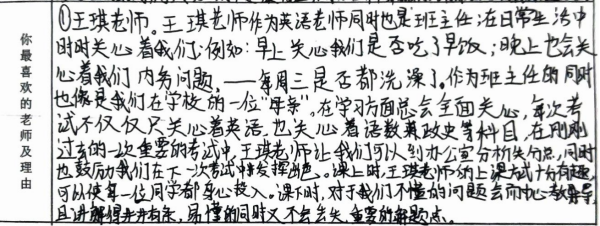 你最喜欢的老师及理由
①王琪老师。王琪老师作为英语老师同时也是班主任;在日常生活中
时时关心着我们;例如:早上关心我们是否吃了早饭;晚上也会关
心着我们内务问题,——每周三是否都洗澡了。作为班主任的同时
也像是我们在学校的一位“母亲”。在学习方面总会全面关心,每次考
试不仅仅只关心着英语,也关心着语数英政史等科目,在刚刚
过去的一次重要的考试中,王琪老师让我们可以到办公室分析失分点,同时
也鼓励我们在下一次考试中发挥出色。课上时,王琪老师的上课方式十分有趣,
可以使每一位同学都身心投入。课下时,对于我们不懂的问题会耐心教导,
且讲解得井井有条,易懂的同时又不会丢失重要的解题点。